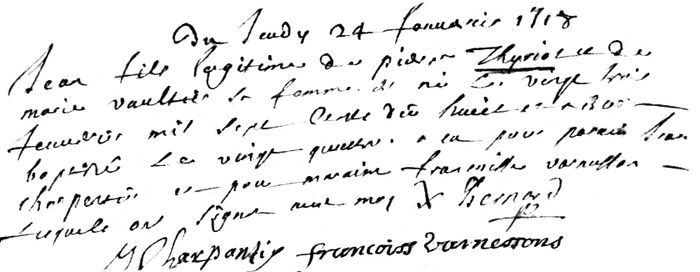 Du Jeudy 24 Januarie 1718
Jean fils legitime de pierre Thyriot et de
marie vaultier sa femme né le vingt trois
Januarie mil sept Cents dix huict et a esté
baptisé le vingt quatre a eu pour parain Jean
charpentié et pour maraine francoisse
lesquels ont signé avec moy
J Charpantiy francoiss varnessons